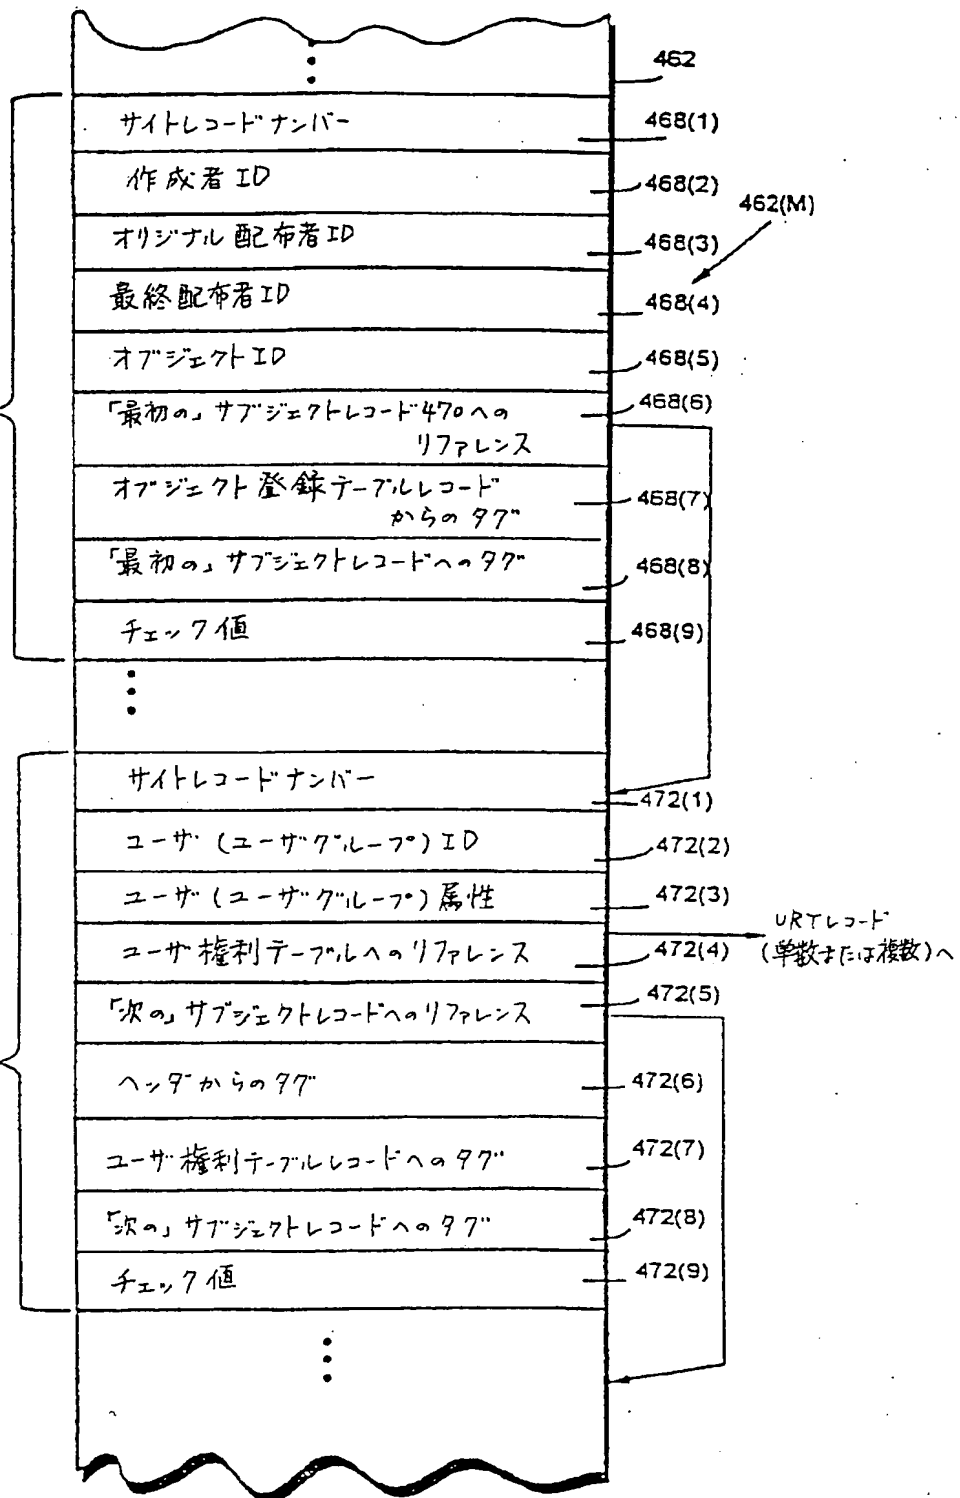 462
サイトレコードナンバー
468(1)
作成者ID
468(2)
462(M)
オリジナル配布者ID
468(3)
最終配布者ID
468(4)
オブジェクトID
468(5)
「最初の」サブジェクトレコード470への
リファレンス
468(6)
オブジェクト登録テーブルレコード
からのタグ
468(7)
「最初の」サブジェクトレコードへのタグ
468(8)
チェック値
468(9)
サイトレコードナンバー
472(1)
ユーザ(ユーザグループ)ID
472(2)
ユーザ(ユーザグループ)属性
472(3)
URTレコード
(単数または複数)へ
ユーザ権利テーブルへのリファレンス
472(4)
「次の」サブジェクトレコードへのリファレンス
472(5)
ヘッダからのタグ
472(6)
ユーザ権利テーブルレコードへのタグ
472(7)
「次の」サブジェクトレコードへのタグ
472(8)
チェック値
472(9)